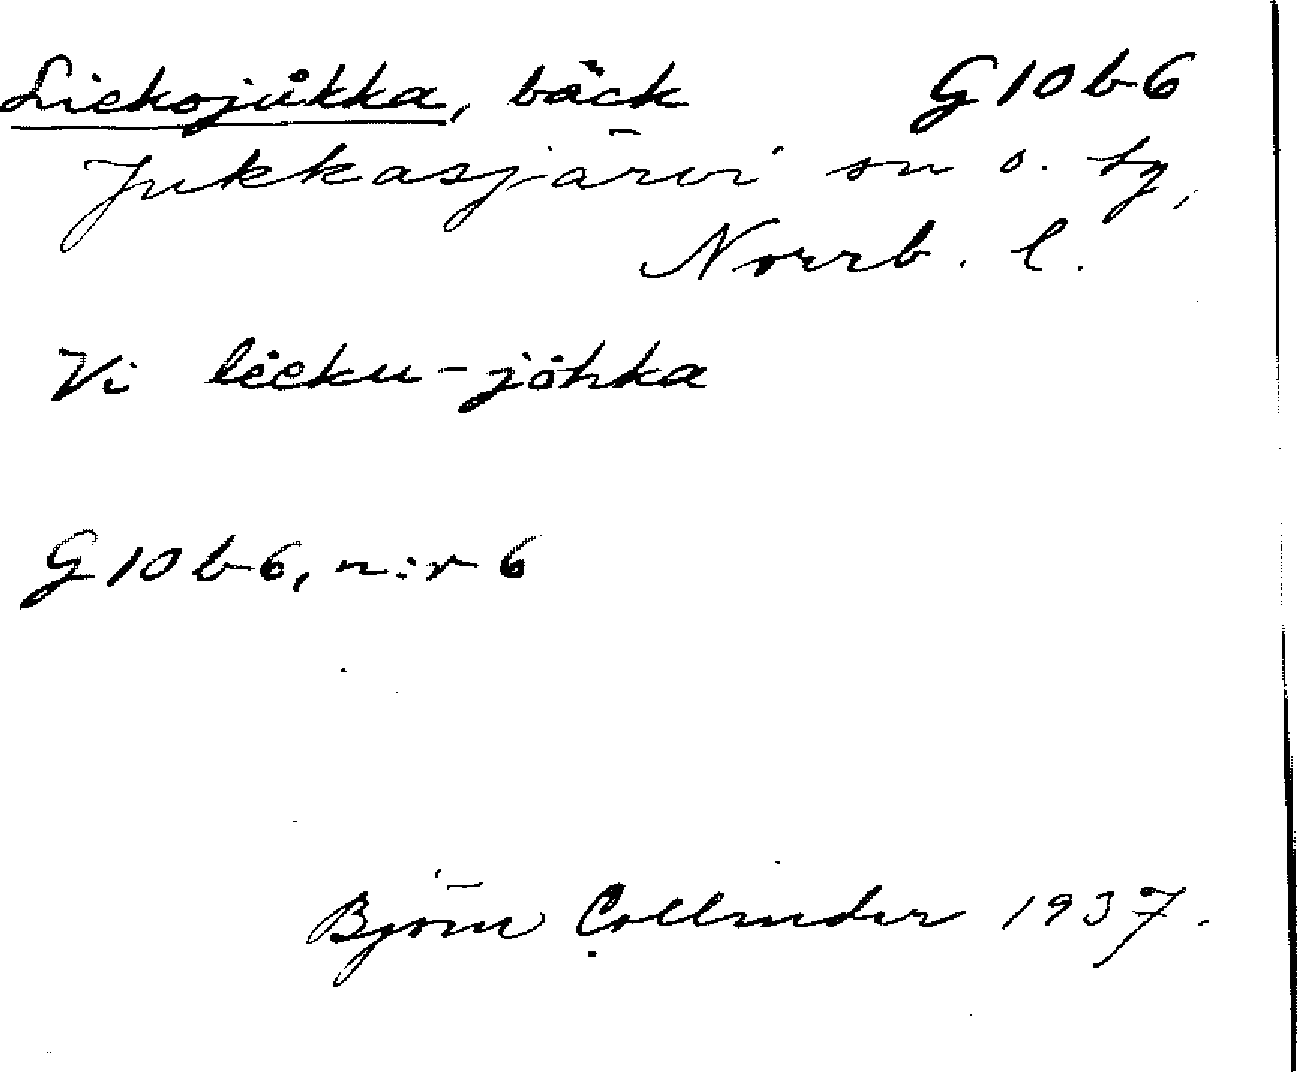 Liekojåkka, bäck G10b6
Jukkasjärvi sn o. tg,
Norrb. l.
Vi lèeku-jòhka
G10b6, n:r 6
Björn Collinder 1937.